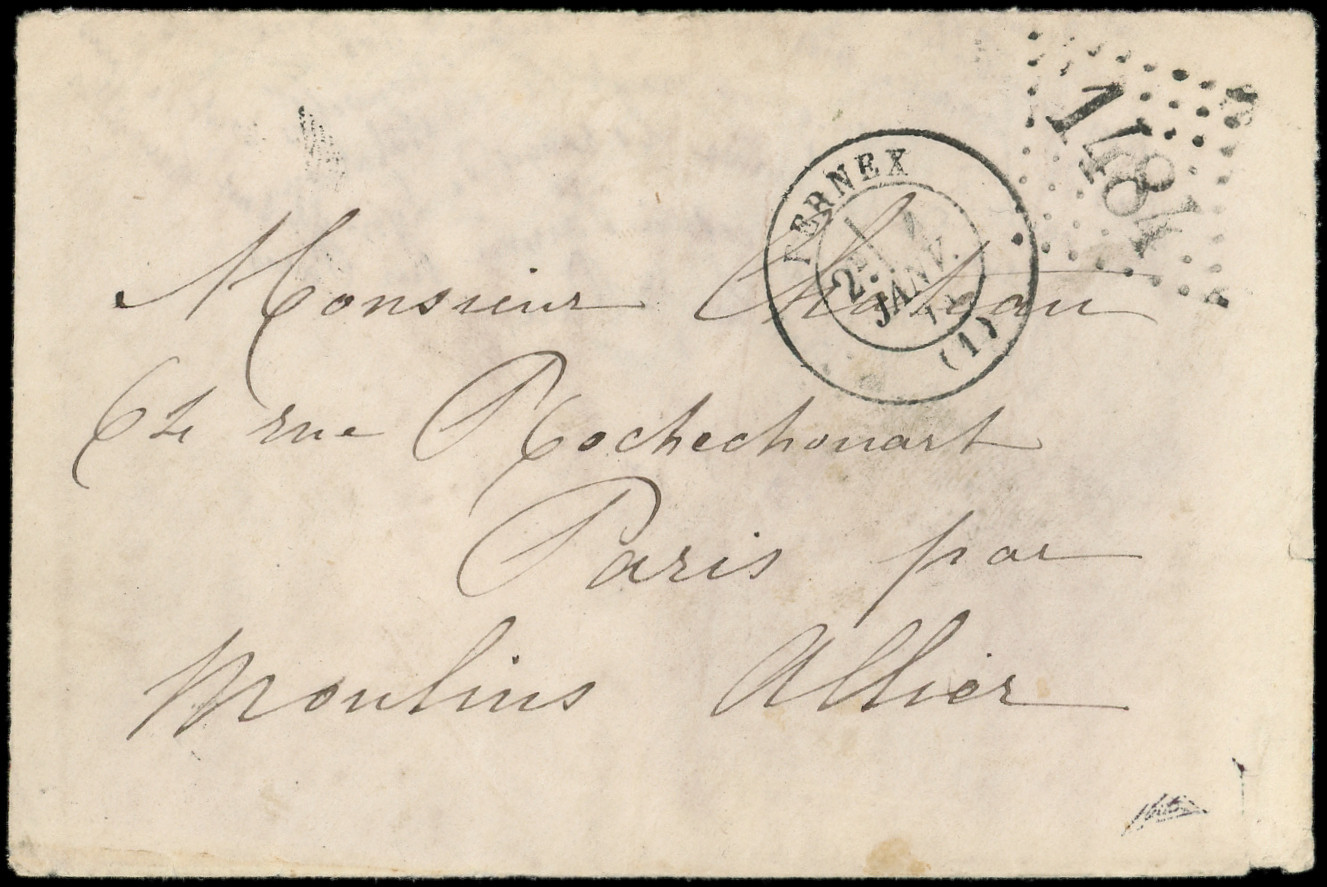 1484
FERNEX
2E 4
JANV.
71
(1)
Monsieur Chateau
64 rue Rochechouart
Paris par
Moulins Allier